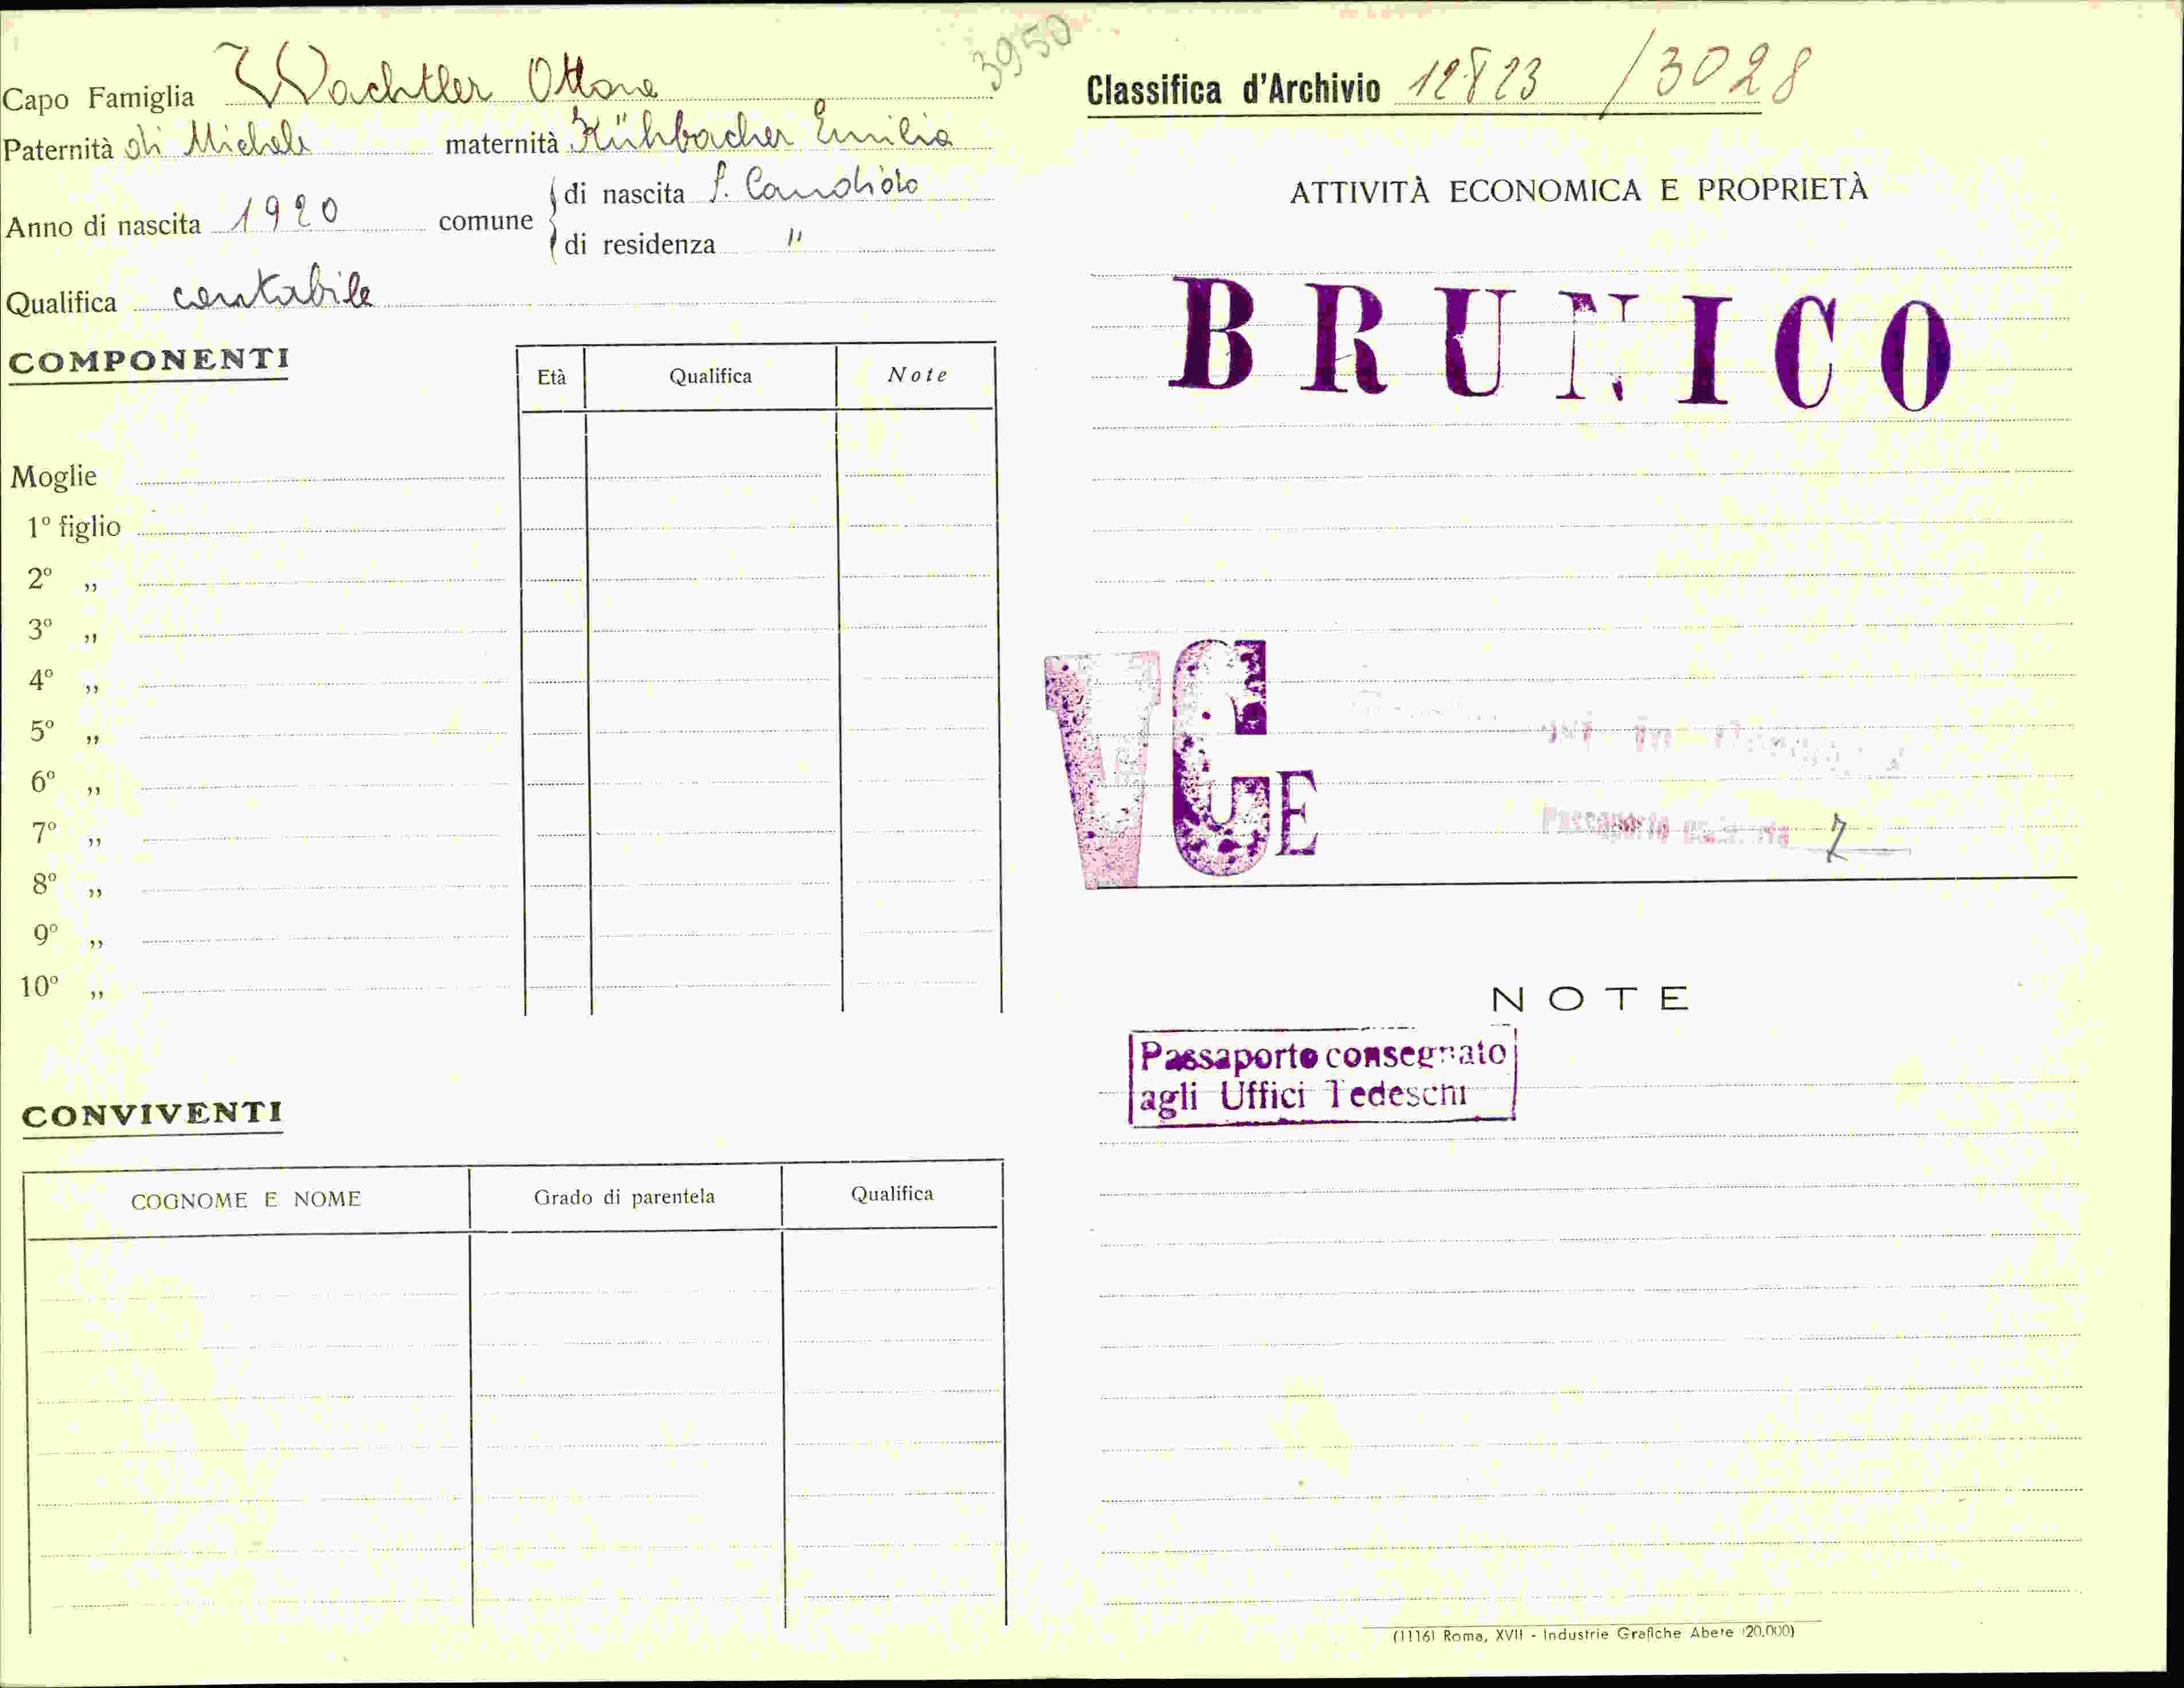 3950
Capo Famiglia Wachtler Ottone
Paternità di Michele maternità Kühbacher Emilia
Anno di nascita 1920 comune di nascita S. Candido
di residenza "
Qualifica contabile
COMPONENTI
Età Qualifica Note
Moglie
1º figlio
2º „
3º „
4º „
5º „
6º „
7º „
8º „
9º „
10º „
CONVIVENTI
COGNOME E NOME Grado di parentela Qualifica
Classifica d'Archivio 12823 /3028
ATTIVITÀ ECONOMICA E PROPRIETÀ
BRUNICO
VGE
Passaporto
NOTE
Passaporto consegnato
agli Uffici Tedeschi
(1116) Roma, XVII - Industrie Grafiche Abete (20.000)